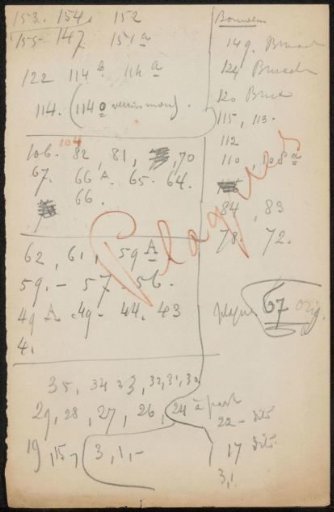 153. 154. 152
155- 147 151 a
122 114 b 114 a
114. (114 o
104
106. 82, 81, 70
67. 66 A. 65. 64.
66.
62, 61, 59 A
59. - 57. - 56.
49 A. 49 - 44. 43
4.
35, 34 33, 32, 31, 30
29, 28, 27, 26, 24 à part
19, 15, 3, 1, -
Plaques
149.
124
120
115, 113.
112
110 108 a
84, 83
78. 72.
67 orig.
22 - dito
17 dito
3, 1